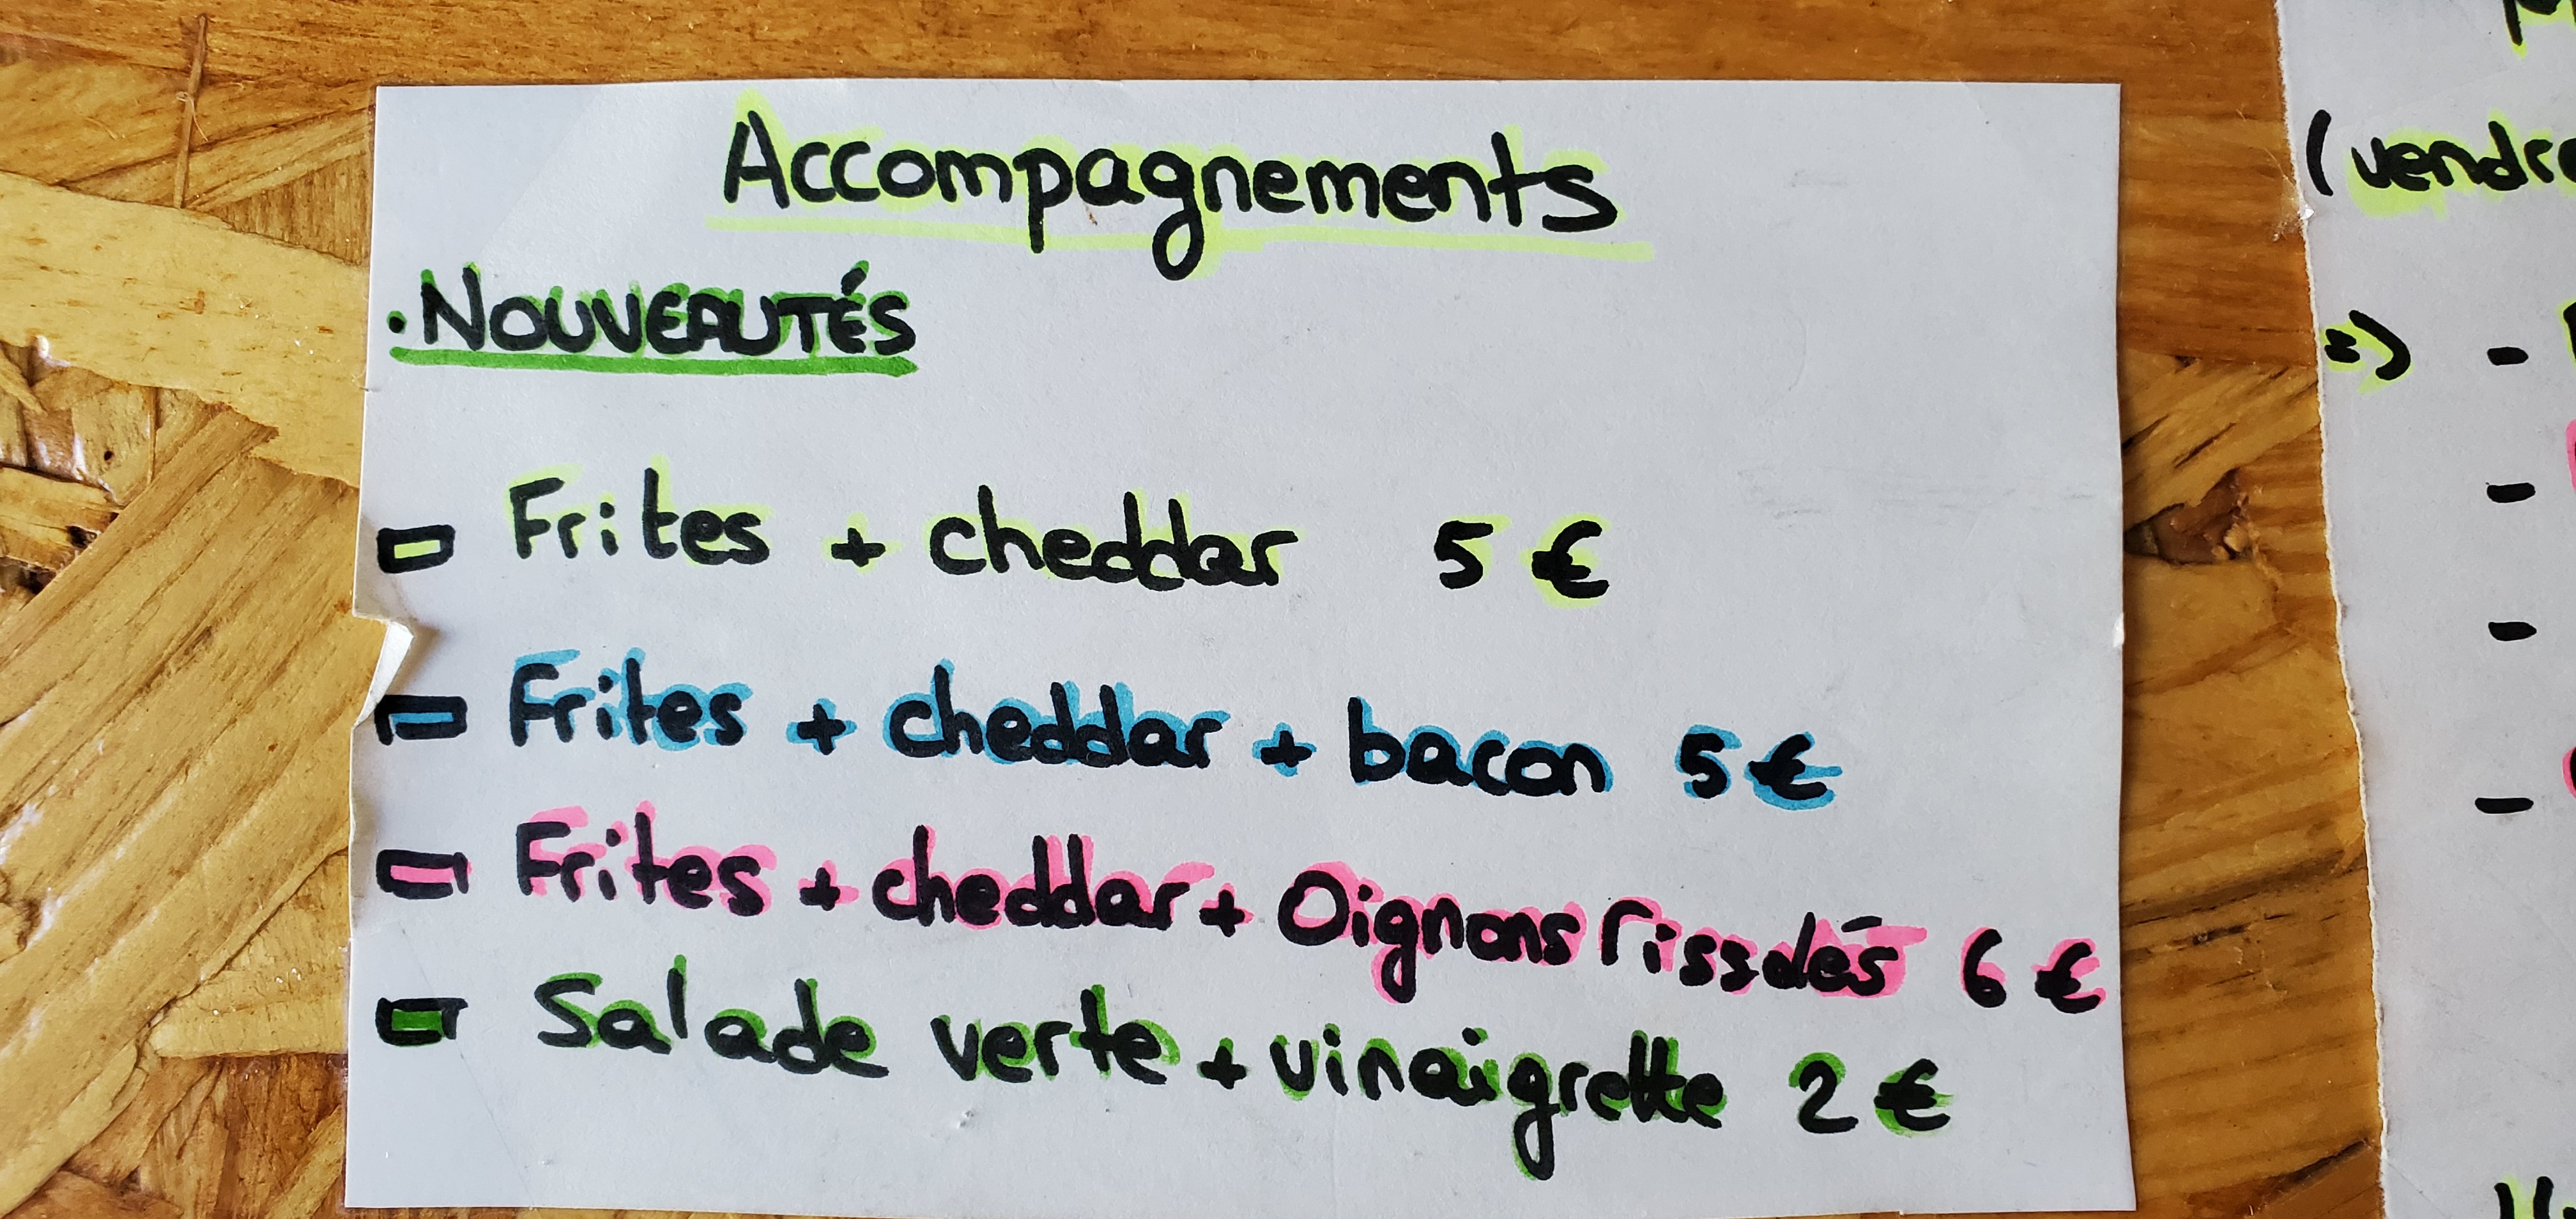 Accompagnements
. NOUVEAUTÉS
- Frites + cheddar 5 €
- Frites + cheddar + bacon 5 €
- Frites + cheddar + Oignons rissolés 6 €
- Salade verte + vinaigrette 2 €
=>) -
-
-
-